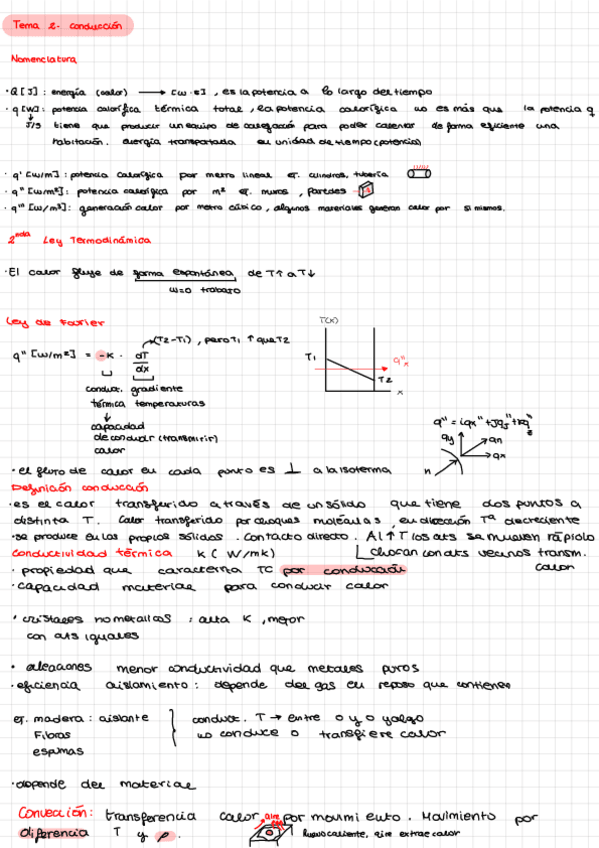 Tema 2- conducción
Nomenclatura
·Q [J]: energía (calor) → [W·s], es la potencia a lo largo del tiempo
·q [W]: potencia calorífica térmica total, la potencia calorífica no es más que la potencia q
J/s tiene que producir un equipo de calefacción para poder calentar de forma eficiente una
habitación. energía transportada en unidad de tiempo (potencia)
·q' [W/m]: potencia calorífica por metro lineal ej. cilindros, tubería
·q'' [W/m²]: potencia calorífica por m² ej. muros, paredes
·q''' [W/m³]: generación calor por metro cúbico, algunos materiales generan calor por si mismos.
2nda Ley Termodinámica
·El calor fluye de forma espontánea de T↑ a T↓
W=0 trabajo
Ley de Fourier
(T2-T1), pero T1 ↑ que T2
q'' [W/m²] = -K · dT/dx
conduct. gradiente
térmica temperaturas
capacidad
de conducir (transmitir)
calor
T(K)
T1
q''x
T2
x
q'' = iqx'' + jqy'' + kq''z
qy
qn
qx
n
·el flujo de calor en cada punto es ⊥ a la isoterma
Definición conducción
·es el calor transferido a través de un sólido que tiene dos puntos a
distinta T. Calor transferido por choques moléculas, en dirección Tª decreciente
·se produce en los propios sólidos. Contacto directo. Al ↑T los ats se mueven rápido
chocan con ats vecinos transm.
calor
conductividad térmica K (W/mK)
· propiedad que caracteriza TC por conducción
·capacidad material para conducir calor
· cristales no metálicos: alta K, mejor
con ats iguales
· aleaciones menor conductividad que metales puros
·eficiencia aislamiento: depende del gas en reposo que contienen
ej. madera: aislante
Fibras
espumas
conduct. T → entre 0 y 0 y algo
no conduce o transfiere calor
·depende del material
Convección: transferencia calor por movimiento. Movimiento por
diferencia T y ρ.
aire
huevo caliente, aire extrae calor